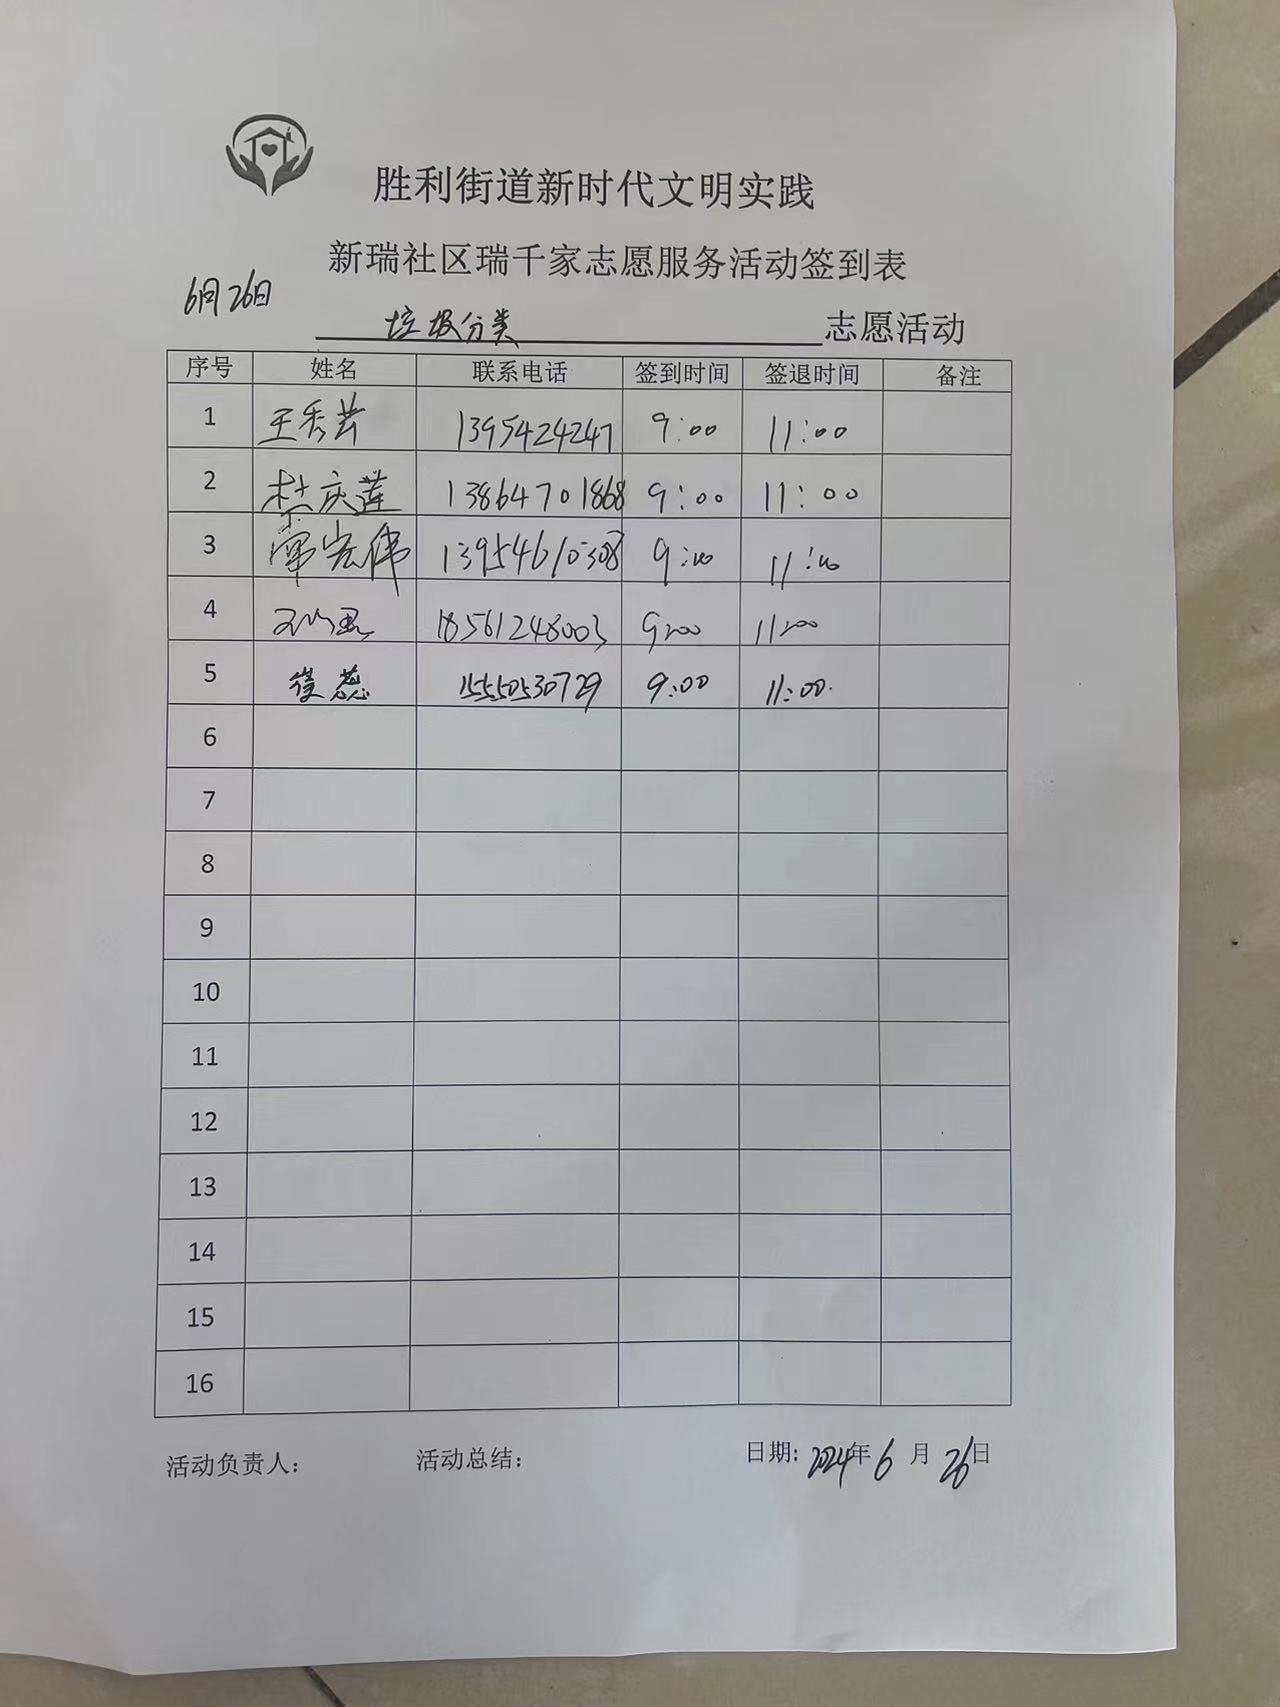 胜利街道新时代文明实践
新瑞社区瑞千家志愿服务活动签到表
6月26日
垃圾分类 志愿活动
序号 姓名 联系电话 签到时间 签退时间 备注
1 王秀芸 1395424247 9:00 11:00
2 杜庆莲 13864701868 9:00 11:00
3 宏伟 13954610308 9:00 11:00
4 18561248003 9:00 11:00
5 蕊 15550530729 9:00 11:00.
6
7
8
9
10
11
12
13
14
15
16
活动负责人: 活动总结: 日期: 2024年 6 月 26日